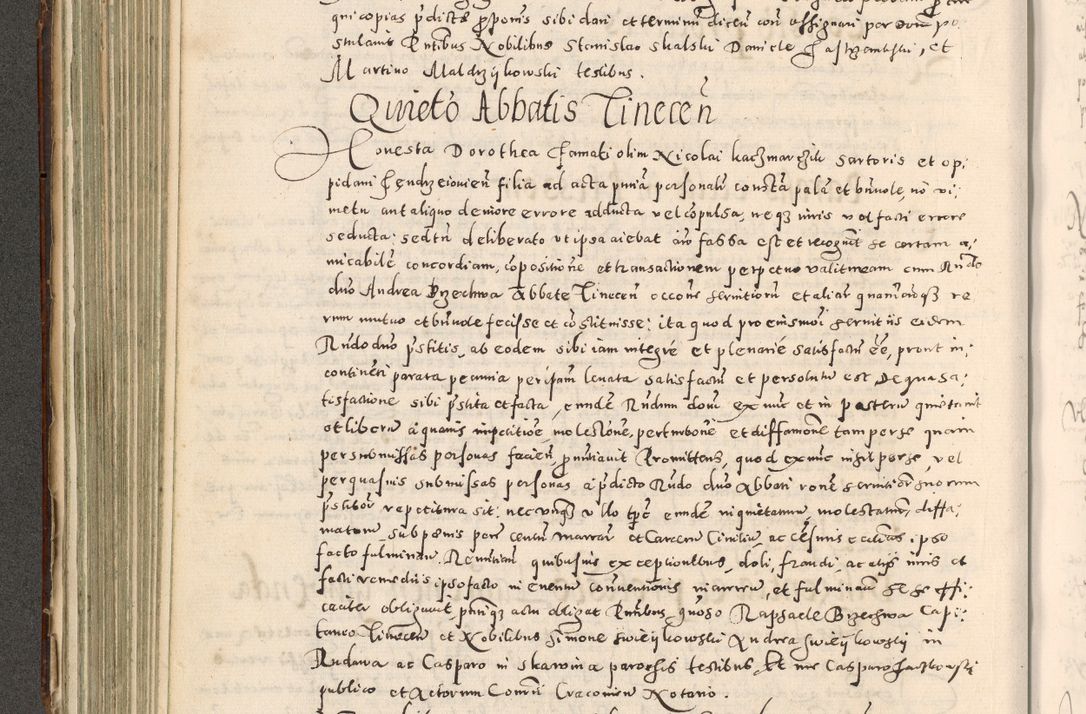 qui copias pdicte ꝓpoñis sibi dari et terminũ dicen coñ assignari per dom po-
stulavit Pntibus Nobilibus Stanislao Skalski Daniele Jastzambski, et
Martino Maldrzijkowski testibus.
Quieto Abbatis Tinecen
Honesta Dorothea Famati olim Nicolai kaczmarczik sartoris et op-
pidani Jendrzeiovien filia ad acta pnia personalr constã palã et bnvole, nõ vi-
metu aut aliquo demore errore adducta vel cõpulsa, neqz iuris vel facti errore
seducta: sed tñ deliberato ut ipsa aiebat aio fassa est et recognvit se certam a-
micabilẽ concordiam, cõpositione et transactionem perpetuo valituram cum Rndo
dño Andrea Brzechwa Abbate Tinecen occone servitiorũ et aliar quarũcunqz re-
rum mutuo et bnvole fecisse et cõstituisse: ita quod pro eiusmõi servitiis eidem
Rndo dno pstitis, ab eodem sibi iam integrè et plenariè satisfactũ eẽ, prout in
continẽti parata pecunia per ipsam levata satisfactũ et persolutũ est, De qua sa-
tisfactione sibi pstita et facta, eundẽ Rndum dom ex nũc et in posterũ quietavit
et liberũ a quavis impetitiõe, molestõne, perturbõne et diffamõne tam per se quam
per submissas personas facien, pnũtiavit Promittens, quod ex nũc nihil per se, vel
per quasvis submissas personas a pdicto Rndo dño Abbati rõne servitior suorum
pstitor repetitura sit: nec unqz ullo tpe eundẽ inquietatur, molestatur, diffa-
matur, sub penis pen centũ marcar et carcer Civiliũ, ac cẽsuris ecclias ipso
facto fulminan. Renuntian quibusvis exceptionibus, doli, fraudi, ac aliis iuris et
facti remediis ipso facto in eventũ contraventionis incurrer, et fulminan se se effi-
caciter obligavit pñtiqz actu obligat Pntibus gnoso Raphaele Brzechwa Capi-
taneo Tinecen et Nobilibus Simone Swieijkowski Andrea Swieijkowskij in
Rudawa ac Casparo in Skawina parochis testibus, Et me Casparo Jastkowskij
publico et Actorum Consrii Cracovien Notario.